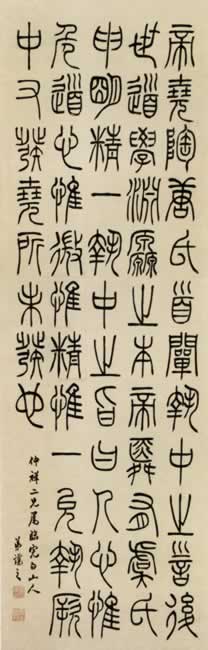 帝堯陶唐氏首闡執中之言後
世道學淵源之本帝舜有虞氏
申明精一執中之旨曰人心惟
危道心惟微惟精惟一允執厥
中又發堯所未發也
仲祥二兄屬臨完白山人
弟讓之